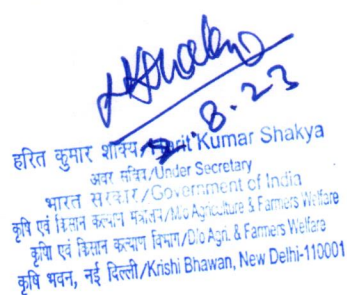 HKShakya
2.8.23
हरित कुमार शाक्य/Harit Kumar Shakya
अवर सचिव/Under Secretary
भारत सरकार/Government of India
कृषि एवं किसान कल्याण मंत्रालय/M/o Agriculture & Farmers Welfare
कृषि एवं किसान कल्याण विभाग/D/o Agri. & Farmers Welfare
कृषि भवन, नई दिल्ली/Krishi Bhawan, New Delhi-110001